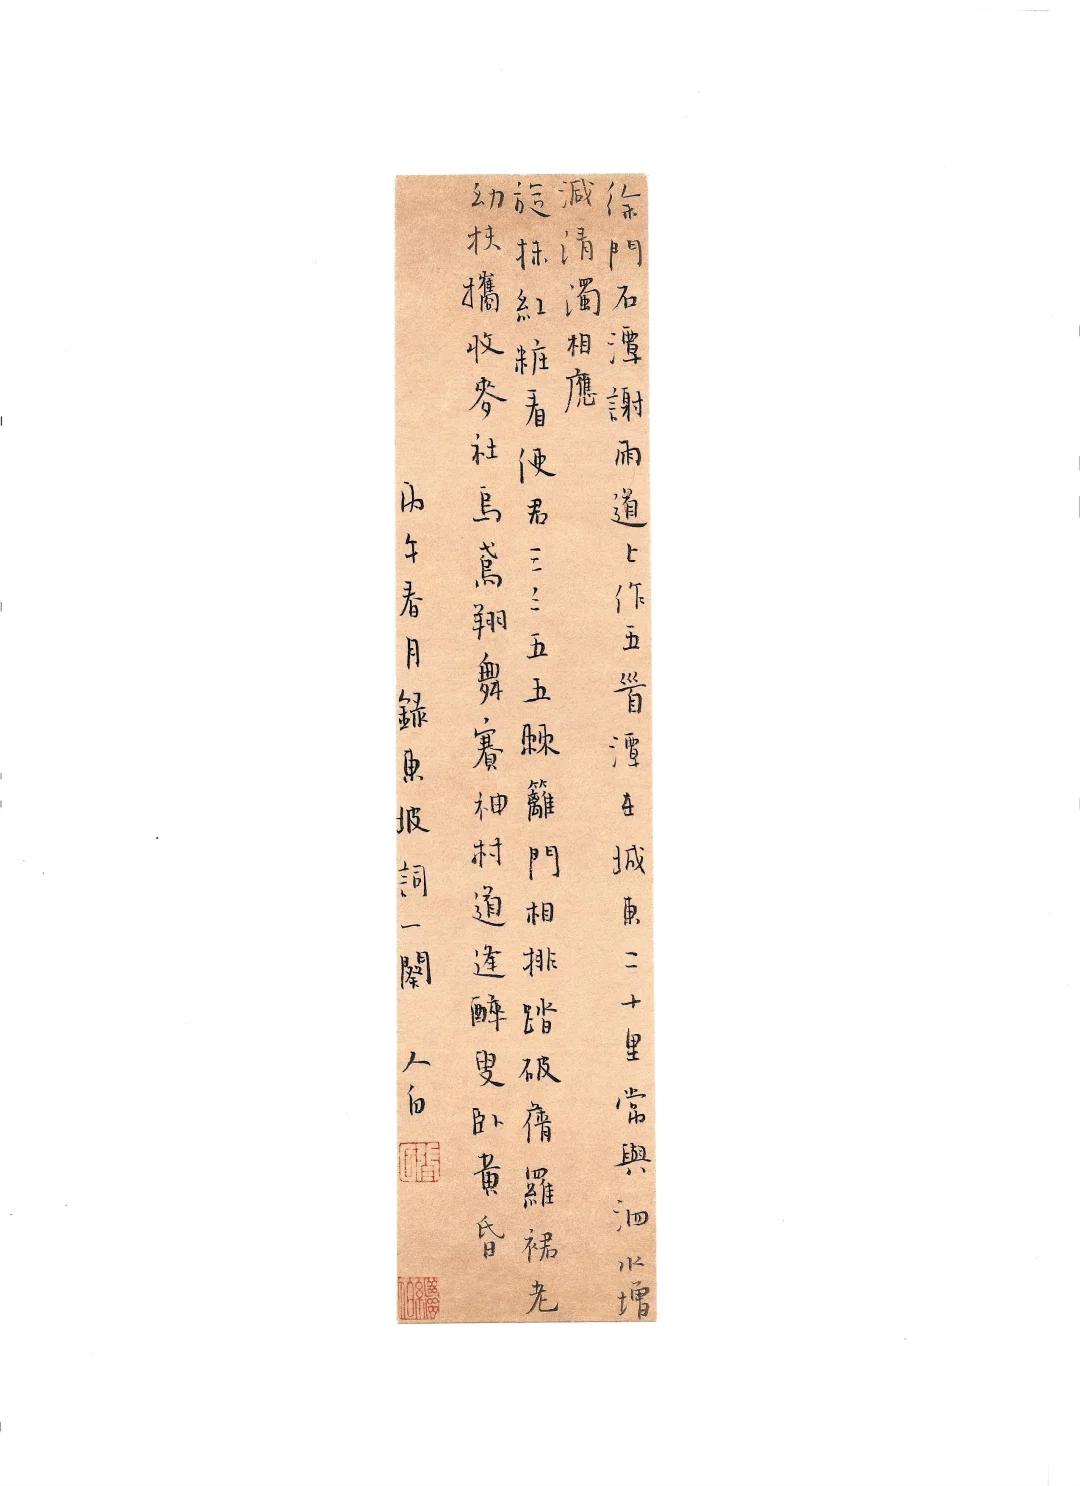 徐門石潭謝雨道上作五首潭在城東二十里常與泗水增
減清濁相應
旋抹紅粧看使君三三五五棘籬門相排踏破蒨羅裙老
幼扶攜收麥社烏鳶翔舞賽神村道逢醉叟臥黃昏
丙午春月錄東坡詞一闋 人白